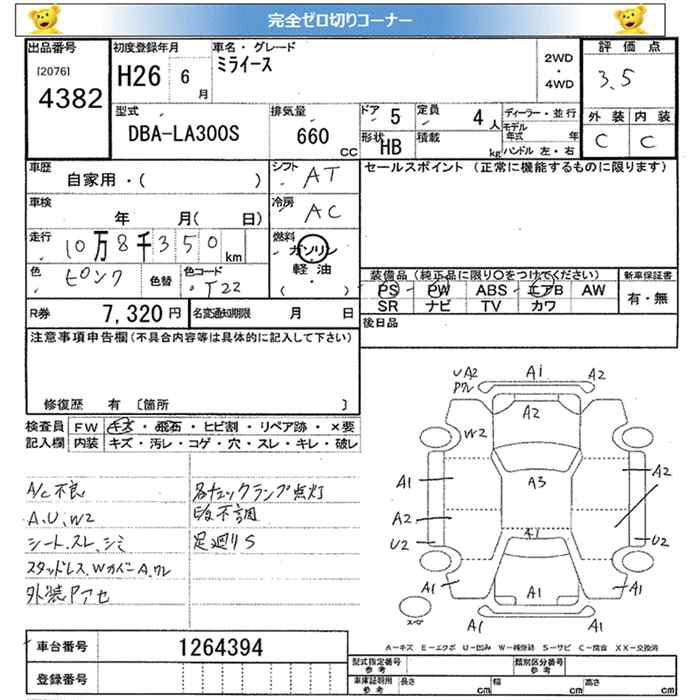 完全ゼロ切りコーナー
出品番号 初度登録年月 車名・グレード 評価点
[2076] H26 6月 ミライース 2WD・4WD 3.5
4382
型式 排気量 ドア 5 定員 4人 ディーラー・並行 外装 内装
DBA-LA300S 660CC 形状 HB 積載 kg モデル年式 年 C C
ハンドル 左・右
車歴 シフト AT セールスポイント (正常に機能するものに限ります)
自家用・( )
車検 冷房 AC
年 月( 日)
走行 10万8千350km 燃料 ガソリン・軽油・( )
色 ピンク 色替 色コード T22
装備品(純正品に限り○をつけてください) 新車保証書
PS PW ABS エアB AW 有・無
SR ナビ TV カワ
R券 7,320円 名変通知期限 月 日
後日品
注意事項申告欄(不具合内容等は具体的に記入して下さい)
修復歴 有 〔箇所 〕
検査員 FW キズ・飛石・ヒビ割・リペア跡・×要
記入欄 内装 キズ・汚レ・コゲ・穴・スレ・キレ・破レ
A/C不良 各チェックランプ点灯
A.U.W2
シート.スレ.シミ 足廻りS
外装色アセ
UA2 A1 A2
A2
W2
A1 A3 A2
A2
U2 A1 U2
A1 A1 A1
A1 A1
スペア
A-キズ E-エクボ U-凹み W-補修跡 S-サビ C-腐食 XX-交換済
車台番号 1264394
型式指定番号 参考 類別区分番号 参考
登録番号
車庫証明用 参考 長さ cm 幅 cm 高さ cm